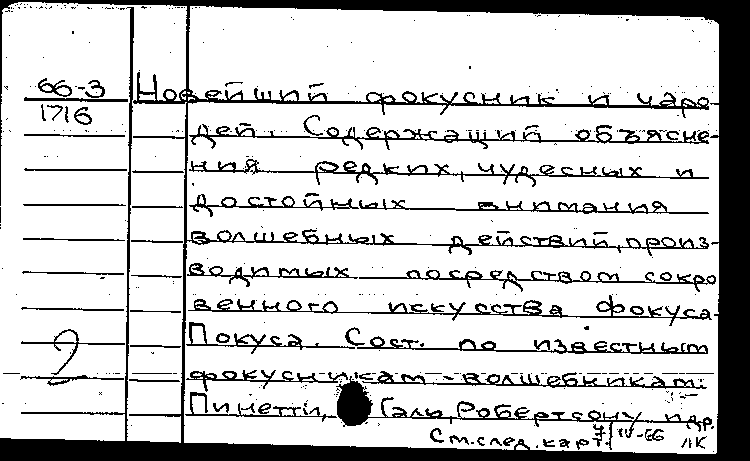 66-3
1716
Новейший фокусник и чаро-
дей. Содержащий объясне-
ния редких, чудесных и
достойных внимания
волшебных действий, произ-
водимых посредством сокро
венного искусства Фокуса-
Покуса. Сост. по известным
фокусникам-волшебникам:
2
Пинетти, Галь, Робертсону и др.
См. след. карт. 7/IV-66 ЛК